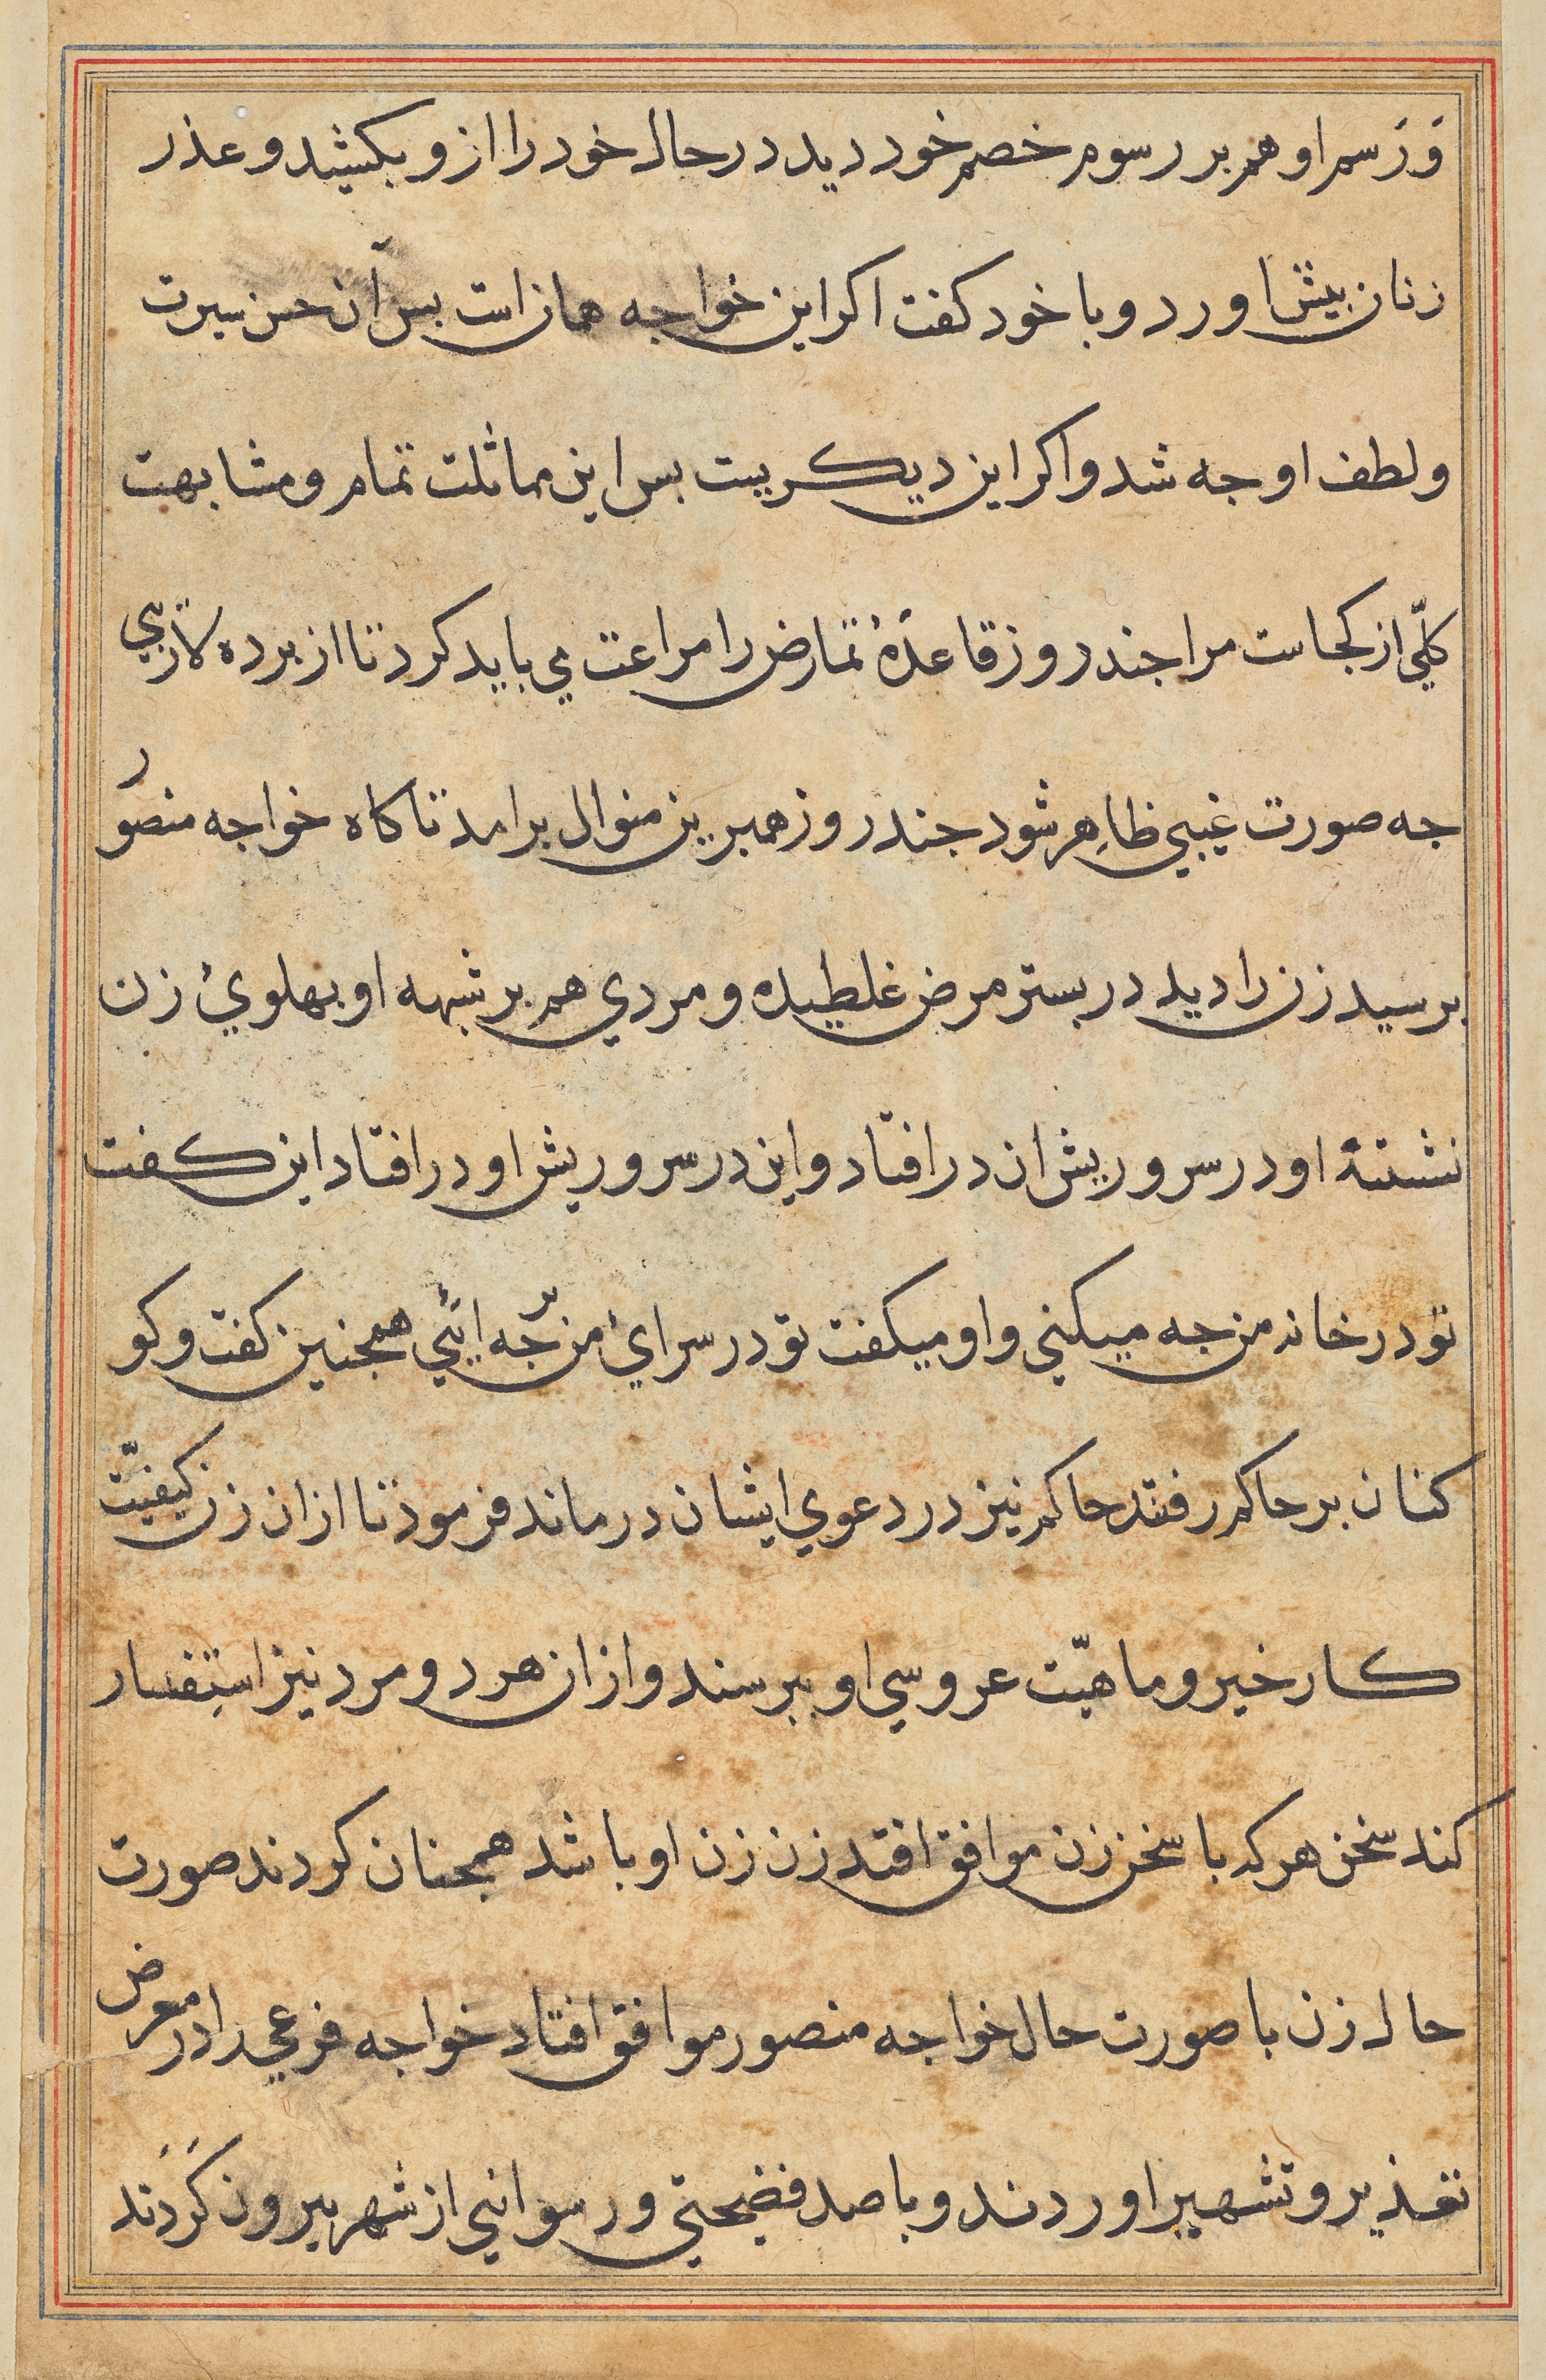 وَرَسم او هم بر رسوم خصم خود دید در حال خود را ازو بکشید و عذر
زنان بیش اورد و با خود کفت اکر این خواجه همان است بس آن حسن سیرت
ولطف او جه شد و اکر این دیکریست بس این مماثلت تمام و مشابهت
کلّی از کجاست مرا جند روز قاعدهٔ تمارض را مراعت می باید کرد تا از برده لاریبی
جه صورت غیبی ظاهِر شود جند روز همبرین منوال برامد ناکاه خواجه منصور
برسید زن را دید در بستر مرض غلطیده و مردی هم بر شبهه او بهلویٔ زن
نشستهٔ او در سر و ریش ان در افتاد و این در سر و ریش او در افتاد این کفت
تو در خانه من جه میکنی و او میکفت تو در سرایٔ من برجه ایٔی همجنین کفت و کو
کنان بر حاکم رفتند حاکم نیز در دعوی ایشان درماند فرمود تا ازان زن کیفیّت
کار خیر و ماهیّت عروسی او ببرسند و ازان هر دو مرد نیز استِفسار
کند سخن هر که با سخن زن موافق افتد زن زن او باشد همجنان کردند صورت
حال زن با صورت حال خواجه منصور موافق افتاد خواجه فرعی را در معرض
تعذیر و تشهیر اوردند و با صد فضیحتی و رسوائی از شهر بیرون کَردَند